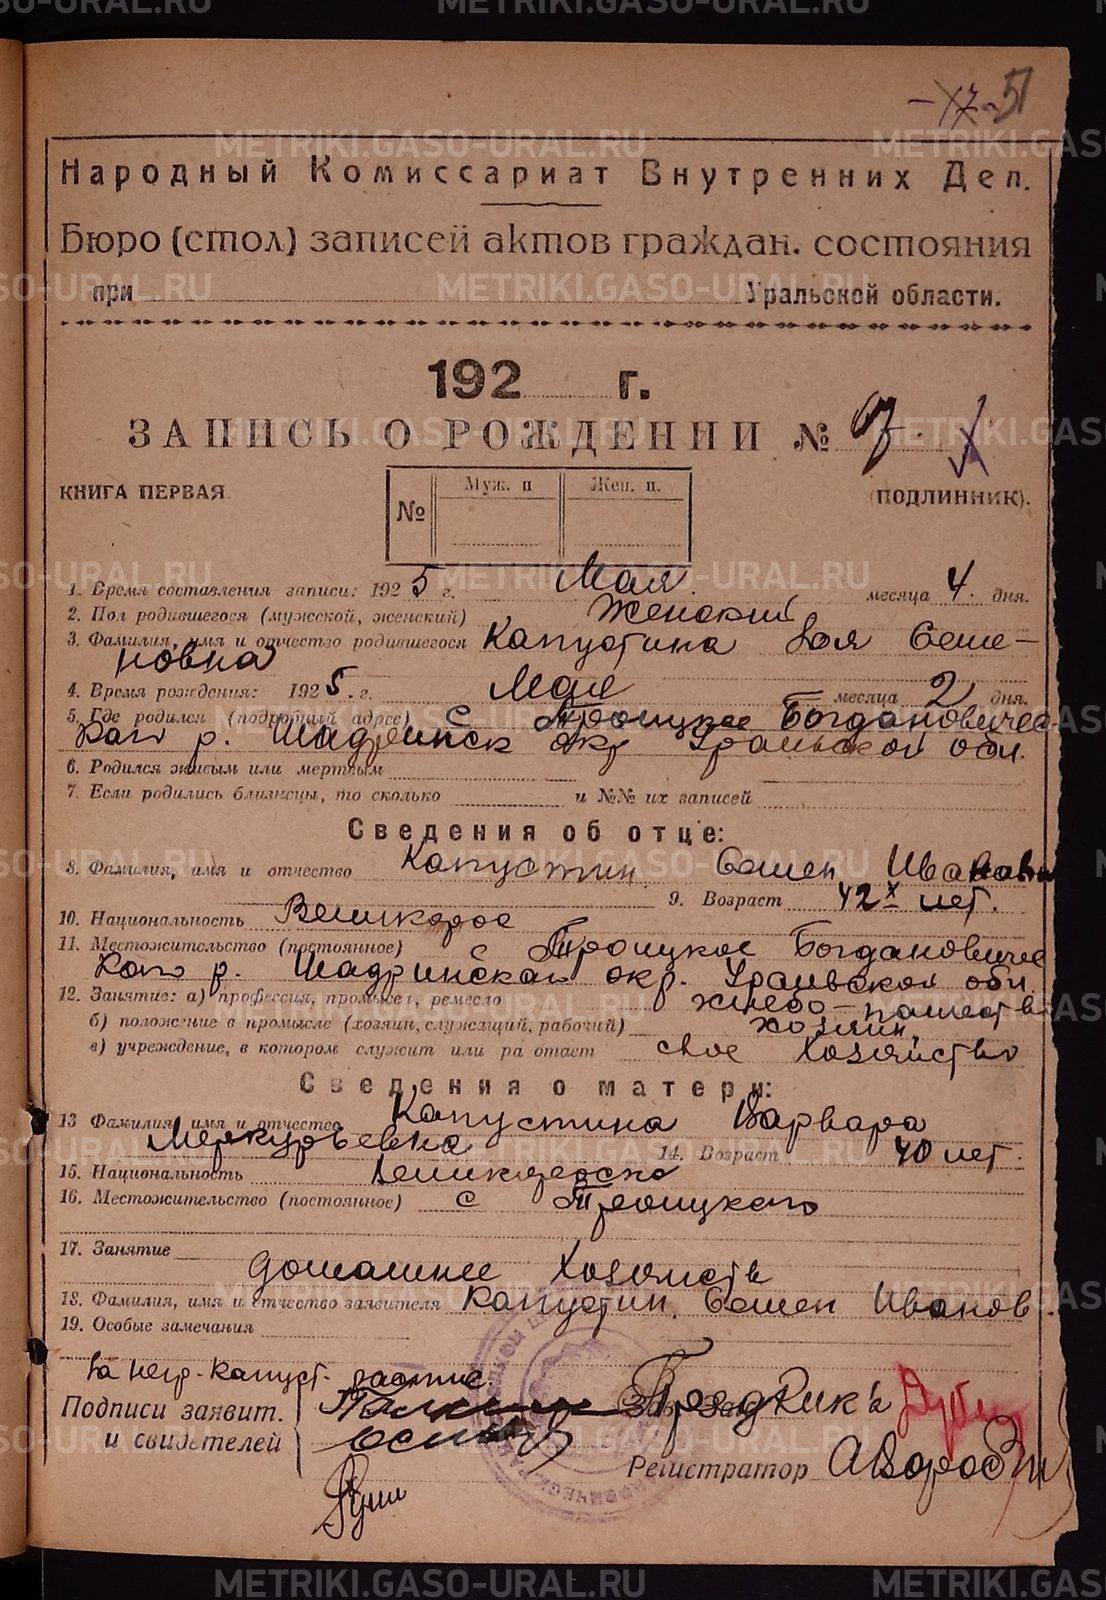 -17- 51
Народный Комиссариат Внутренних Дел.
Бюро (стол) записей актов граждан. состояния
при Уральской области.
192 г.
ЗАПИСЬ О РОЖДЕНИИ №
КНИГА ПЕРВАЯ. (ПОДЛИННИК).
№ Муж. п Жен. п.
1. Время составления записи: 1925 г. Мая месяца 4. дня.
2. Пол родившегося (мужской, женский) Женский
3. Фамилия, имя и отчество родившегося Капустина Зоя Семе-
новна
4. Время рождения: 1925. г. Мая месяца 2 дня.
5. Где родился (подробный адрес) с Троицкое Богдановичес-
каго р. Шадринск окр Уральской обл.
6. Родился живым или мертвым
7. Если родились близнецы, то сколько и №№ их записей
Сведения об отце:
8. Фамилия, имя и отчество Капустин Семен Иванович
9. Возраст 42х лет.
10. Национальность Великорос
11. Местожительство (постоянное) с Троицкое Богдановичес
каго р. Шадринскаго окр. Уральской обл.
12. Занятие: а) профессия, промысел, ремесло хлебо-пашеств
б) положение в промысле (хозяин, служащий, рабочий) хозяин
в) учреждение, в котором служит или работает свое Хозяйство
Сведения о матери:
13 Фамилия, имя и отчество Капустина Варвара
Меркурьевна 14. Возраст 40 лет.
15. Национальность Великоросска
16. Местожительство (постоянное) с Троицкаго
17. Занятие
домашнее Хозяйств
18. Фамилия, имя и отчество заявителя Капустин. Семен Иванов.
19. Особые замечания
За негр. Капуст. распис.
Подписи заявит. Зав. ПредРик'а
и свидетелей
Регистратор
METRIKI.GASO-URAL.RU